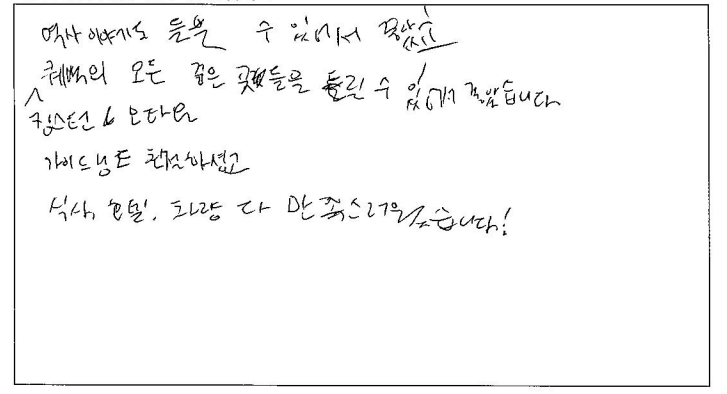 역사 이야기도 들을 수 있어서 좋았고
퀘벡의 모든 좋은 곳들을 들릴 수 있어서 좋았습니다
킹스턴 & 오타와
가이드님도 친절하셨고
식사, 호텔, 차량 다 만족스러웠습니다!